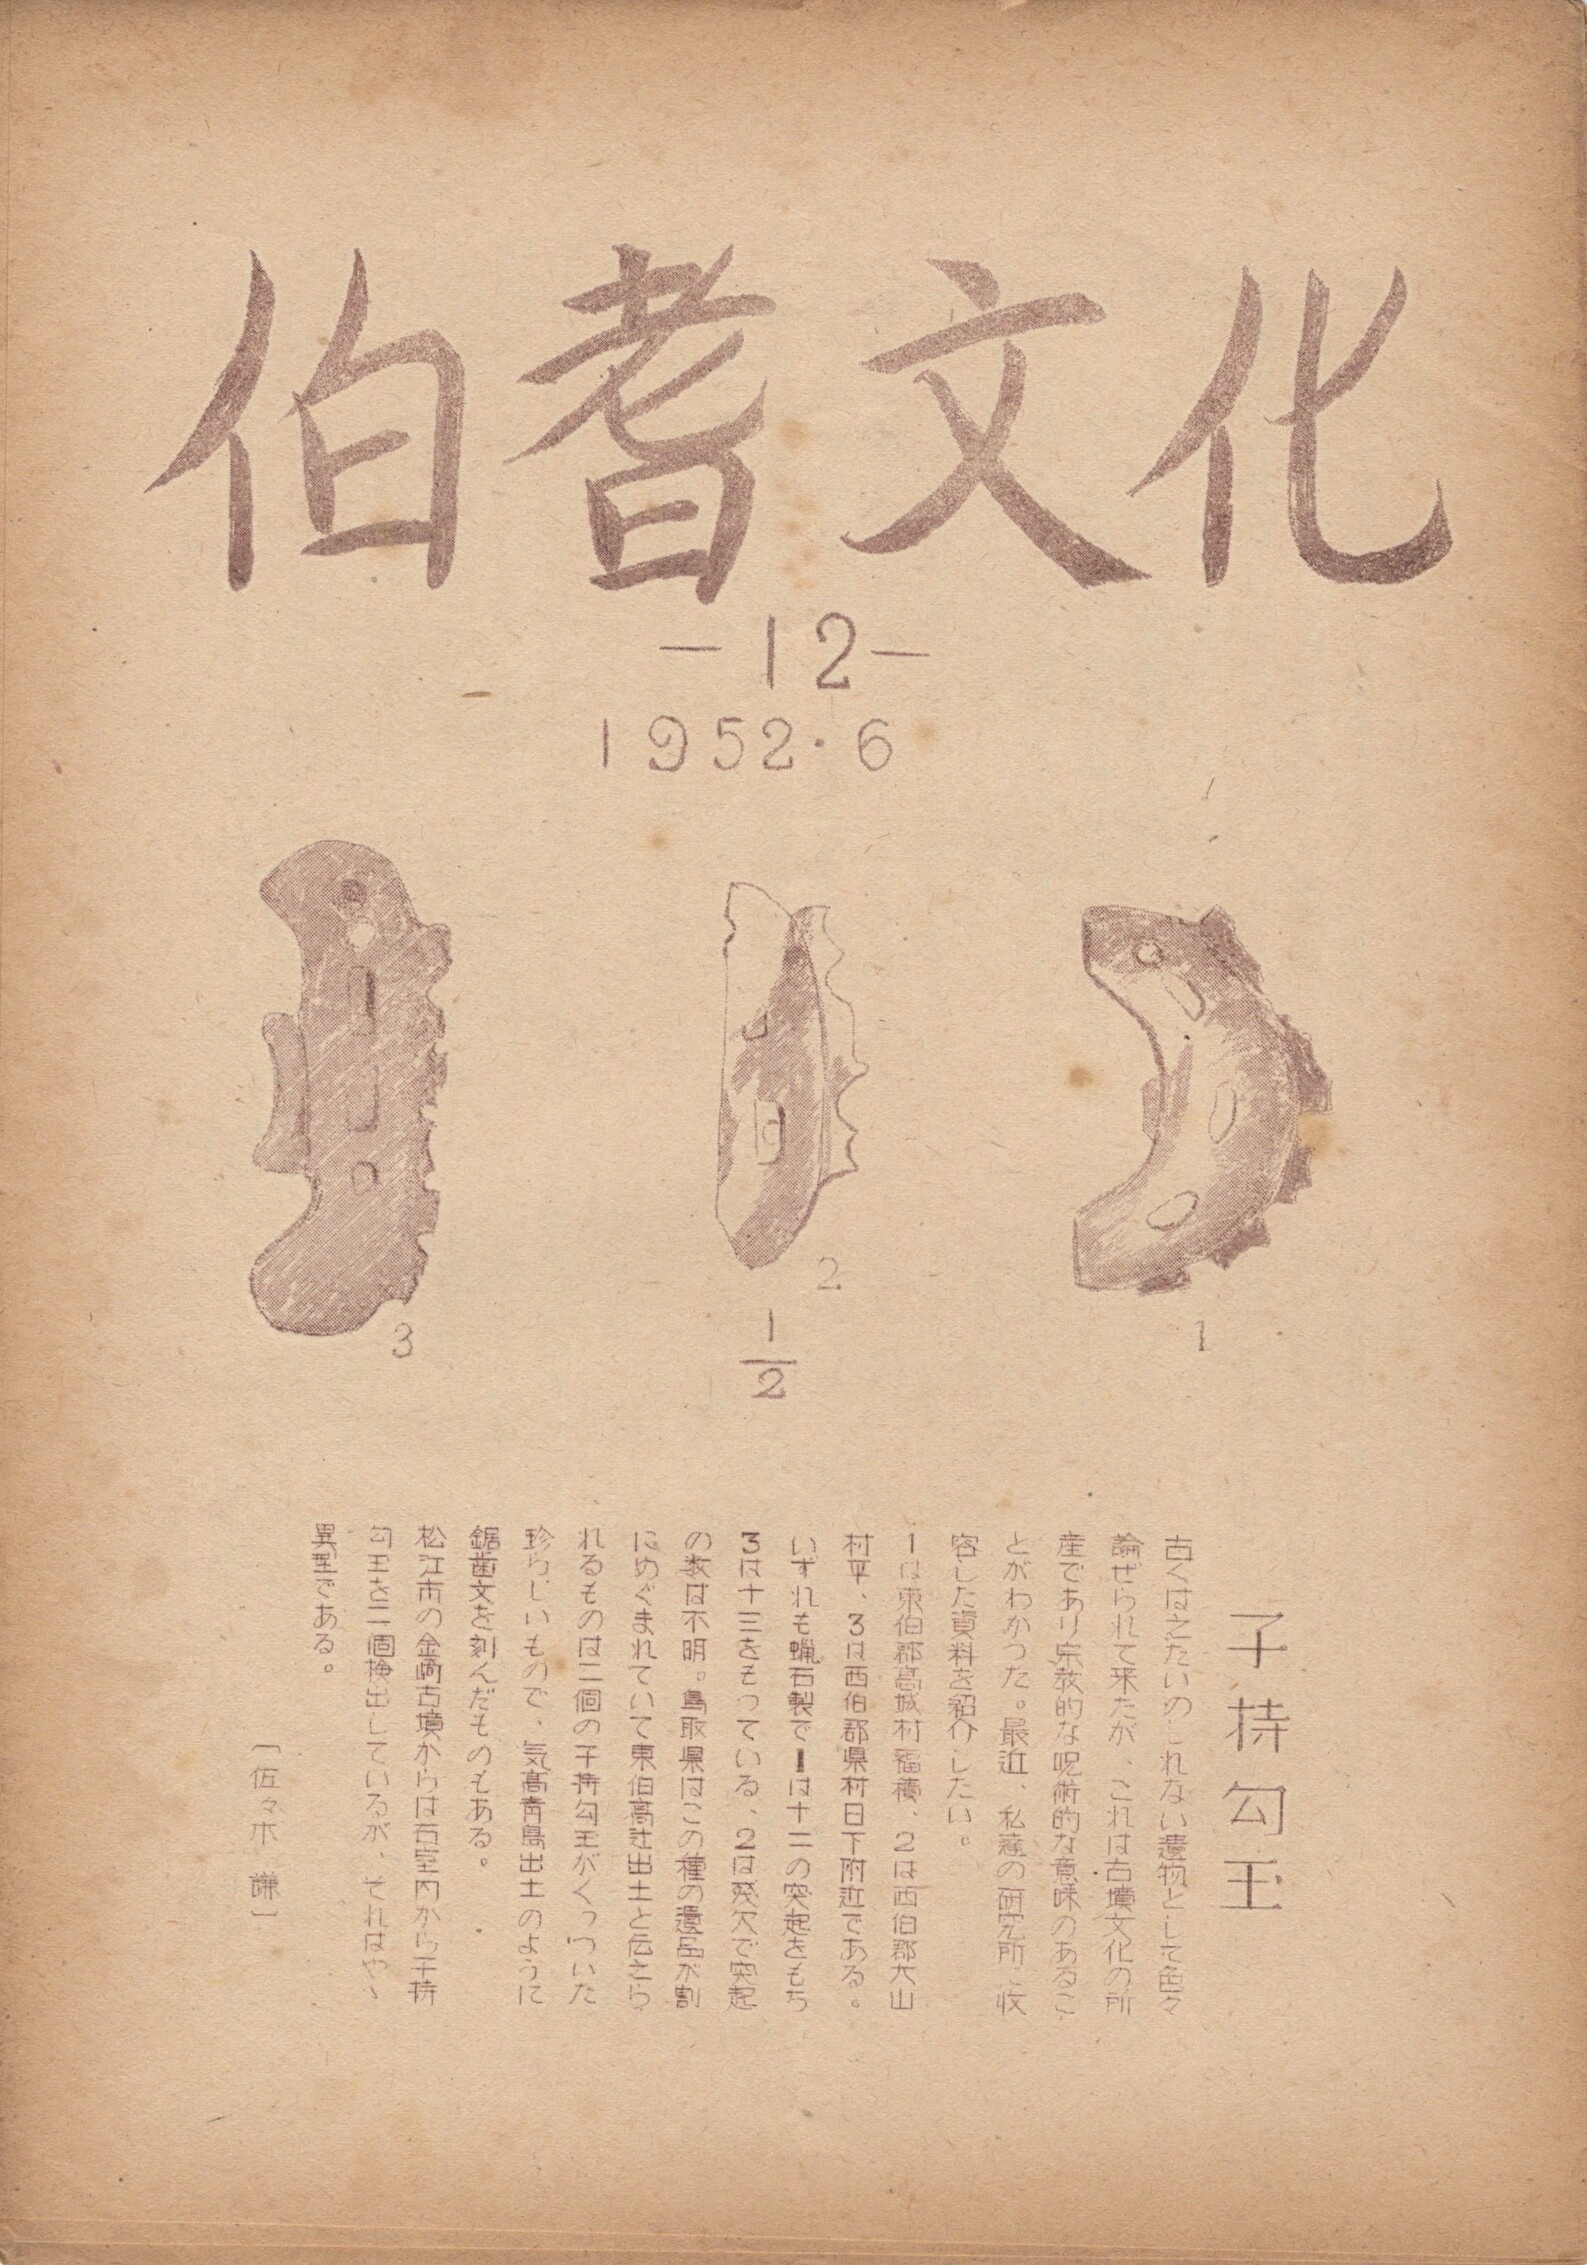 伯耆文化
－12－
1952・6
3
2
1
1/2
子持勾玉
古くはえたいのしれない遺物として色々
論ぜられて来たが、これは古墳文化の所
産であり宗教的な呪術的な意味のあるこ
とがわかつた。最近、私達の研究所に收
容した資料を紹介したい。
1は東伯郡高城村福積、2は西伯郡大山
村平、3は西伯郡県村日下附近である。
いずれも蝋石製で1は十二の突起をもち
3は十三をもつている、2は残欠で突起
の数は不明。鳥取県はこの種の遺品が割
にめぐまれていて東伯高辻出土と伝えら
れるものは二個の子持勾玉がくっついた
珍らしいもので、気高青島出土のように
鋸歯文を刻んだものもある。
松江市の金崎古墳からは石室内から子持
勾玉を二個検出しているが、それはやゝ
異型である。
〔佐々木 謙〕